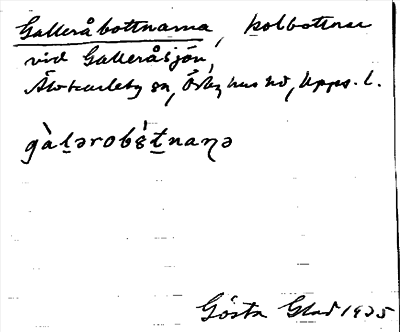 Galleråbottnarna, kolbottnar
vid Galleråsjön,
Älvkarleby sn, Örbyhus hd, Upps. l.
gàḻərobɛ́ṯnaṉə
Gösta Glad 1935